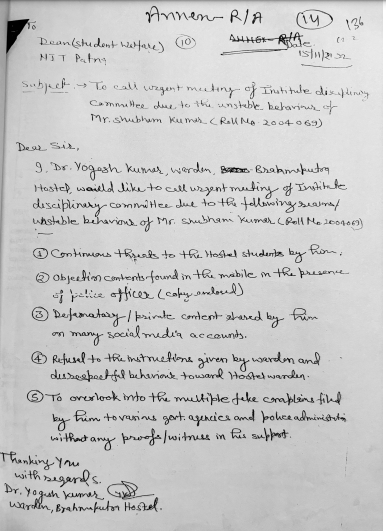 Annex- R/A (14) 136
To
Dean (student welfare) (10)
NIT Patna
Date
15/11/2022
Subject → To call urgent meeting of Institute disciplinary
Committee due to the unstable behaviour of
Mr. Shubham Kumar (Roll No. 2004069)
Dear Sir,
I, Dr. Yogesh Kumar, warden, Brahmaputra
Hostel, would like to call urgent meeting of Institute
disciplinary committee due to the following reasons/
unstable behaviours of Mr. Shubham Kumar (Roll No. 2004069)
① Continuous threats to the Hostel students by him.
② Objection contents found in the mobile in the presence
of police officer (copy enclosed)
③ Defamatary / private content shared by him
on many social media accounts.
④ Refusal to the instructions given by warden and
disrespectful behaviour toward Hostel warden.
⑤ To overlook into the multiple fake complains filed
by him to various govt. agencies and police administratn
without any proofs/witness in his support.
Thanking You
with regards.
Dr. Yogesh Kumar
Warden, Brahmaputra Hostel.